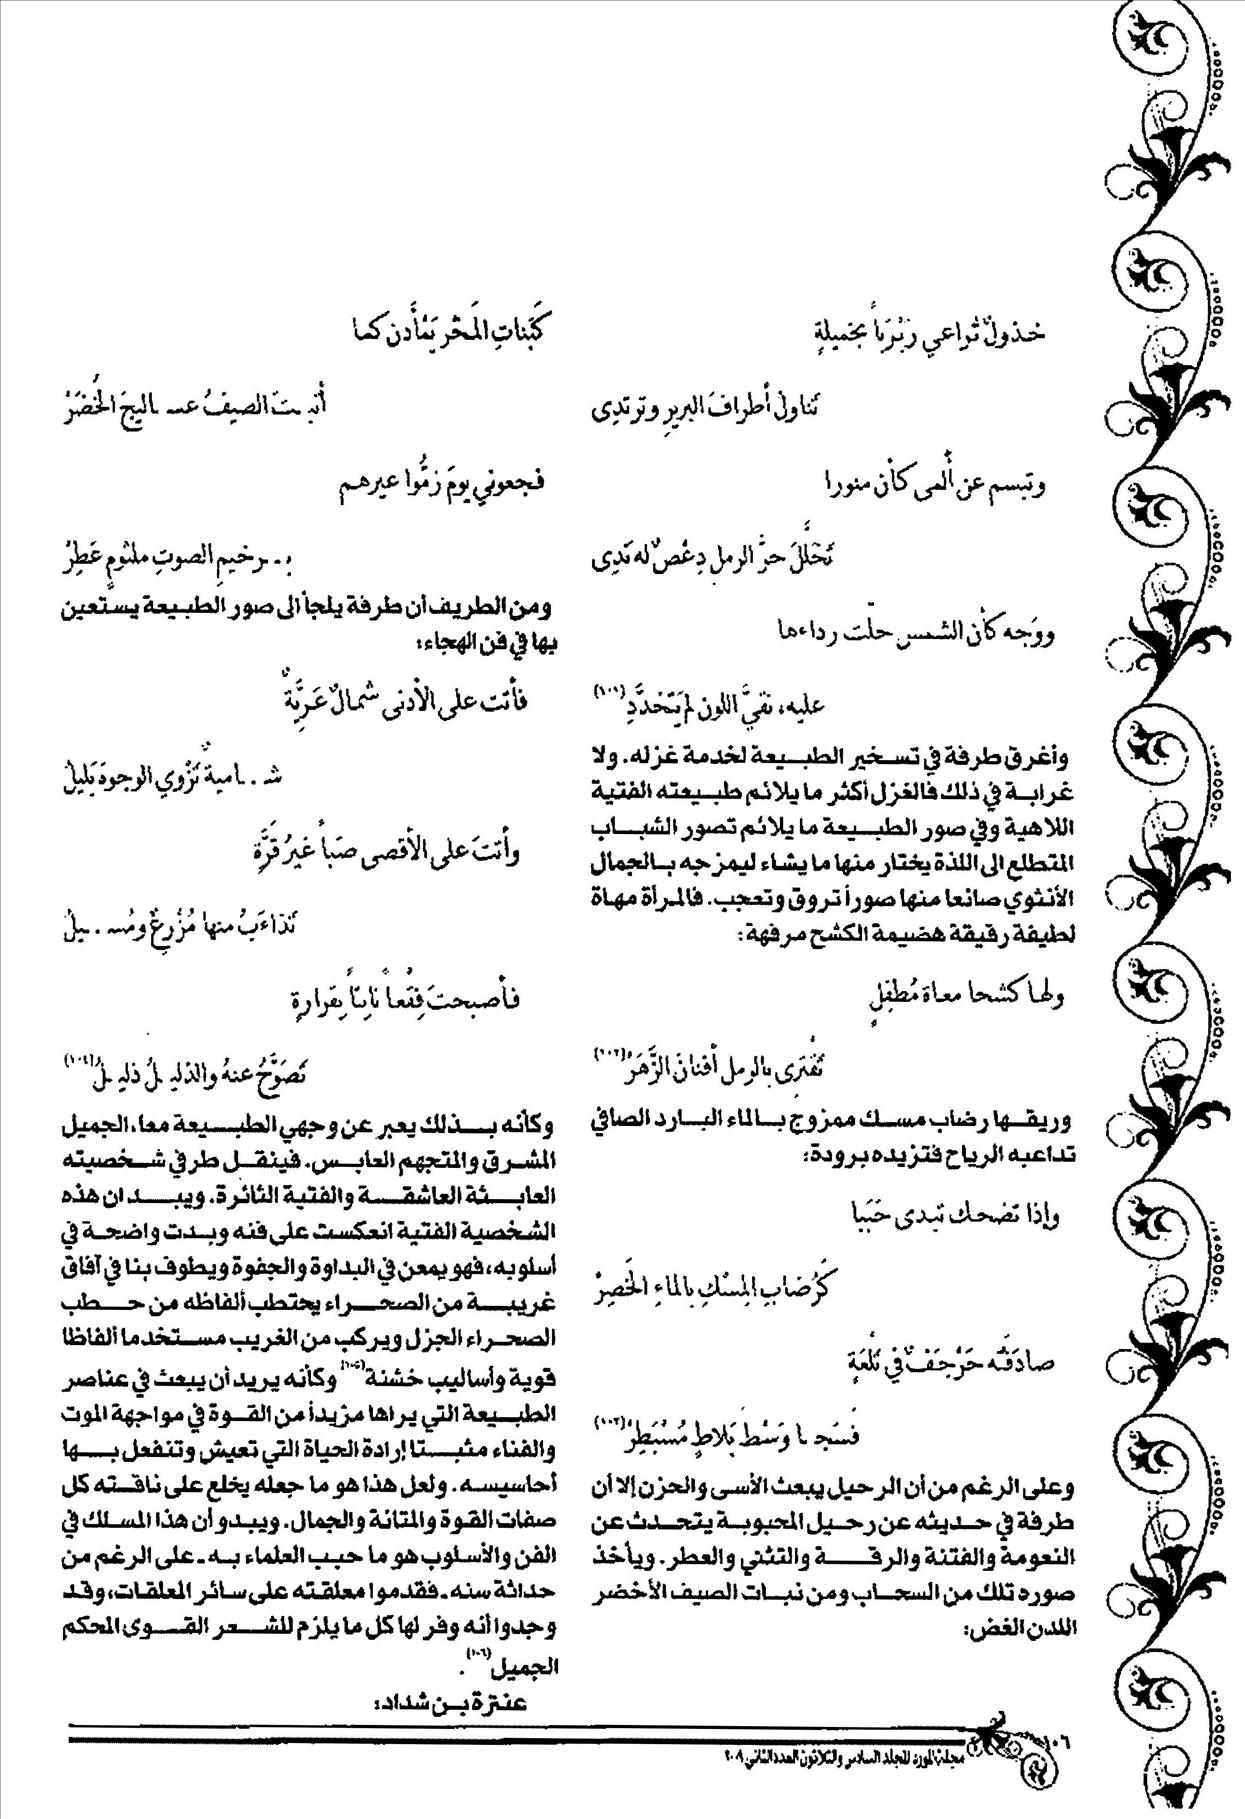 خذولٌ تُراعي رَبْرَباً بخميلةٍ
تَناولُ أطرافَ البريرِ وترتدِى
وتبسم عن ألمى كأن منورا
تَخَلَّلَ حرَّ الرملِ دِعْصٌ له نَدِى
ووَجه كأن الشمس حلّت رداءها
عليه، نقيَّ اللون لم يَتَخَدَّدِ (١٠١)
وأغرق طرفة في تسخير الطبيعة لخدمة غزله. ولا
غرابة في ذلك فالغزل أكثر ما يلائم طبيعته الفتية
اللاهية وفي صور الطبيعة ما يلائم تصور الشباب
المتطلع الى اللذة يختار منها ما يشاء ليمزجه بالجمال
الأنثوي صانعا منها صوراً تروق وتعجب. فالمرأة مهاة
لطيفة رقيقة هضيمة الكشح مرفهة:
ولها كشحا معاة مُطفِلٍ
تَقْتَرى بالرمل أفنانَ الزَّهَرْ (١٠٢)
وريقها رضاب مسك ممزوج بالماء البارد الصافي
تداعبه الرياح فتزيده برودة:
وإذا تضحك تبدى حَبَبا
كَرُضابِ المِسْكِ بالماءِ الخَصِرْ
صادَفَتْه حَرْجَفٌ في تَلْعَةٍ
فسَجا وَسْطَ بَلاطٍ مُسْبَطِرْ (١٠٣)
وعلى الرغم من أن الرحيل يبعث الأسى والحزن إلا أن
طرفة في حديثه عن رحيل المحبوبة يتحدث عن
النعومة والفتنة والرقة والتثني والعطر. ويأخذ
صوره تلك من السحاب ومن نبات الصيف الأخضر
اللدن الغض:
كَبَناتِ المَخْر يَمْأَدن كما
أنبتَ الصيفُ عساليجَ الخُضَرْ
فجعوني يومَ زمُّوا عيرهم
برخيمِ الصوتِ ملثومٍ عَطِرْ
ومن الطريف أن طرفة يلجأ الى صور الطبيعة يستعين
بها في فن الهجاء:
فأنت على الأدنى شمالٌ عَرِيَّةٌ
شاميةٌ تَزْوي الوجوهَ بَليلُ
وأنتَ على الأقصى صَباً غيرُ قَرَّةٍ
تَذاءَبُ منها مُزْرِعٌ ومُسيلُ
فأصبحتَ فِقَعاً نابِتاً بِقَرارةٍ
تَصَوَّحُ عنهُ والذليلُ ذليلُ (١٠٤)
وكأنه بذلك يعبر عن وجهي الطبيعة معا، الجميل
المشرق والمتجهم العابس. فينقل طرفي شخصيته
العابثة العاشقة والفتية الثائرة. ويبدان هذه
الشخصية الفتية انعكست على فنه وبدت واضحة في
أسلوبه، فهو يمعن في البداوة والجفوة ويطوف بنا في آفاق
غريبة من الصحراء يحتطب ألفاظه من حطب
الصحراء الجزل ويركب من الغريب مستخدما ألفاظا
قوية وأساليب خشنة (١٠٥) وكأنه يريد أن يبعث في عناصر
الطبيعة التي يراها مزيداً من القوة في مواجهة الموت
والفناء مثبتا إرادة الحياة التي تعيش وتنفعل بها
أحاسيسه. ولعل هذا هو ما جعله يخلع على ناقته كل
صفات القوة والمتانة والجمال. ويبدو أن هذا المسلك في
الفن والأسلوب هو ما حبب العلماء به ـ على الرغم من
حداثة سنه ـ فقدموا معلقته على سائر المعلقات، وقد
وجدوا أنه وفر لها كل ما يلزم للشعر القوى المحكم
الجميل (١٠٦).
عنترة بن شداد:
١٠٦
مجلة المورد المجلد السادس والثلاثون العدد الثاني ٢٠٠٩